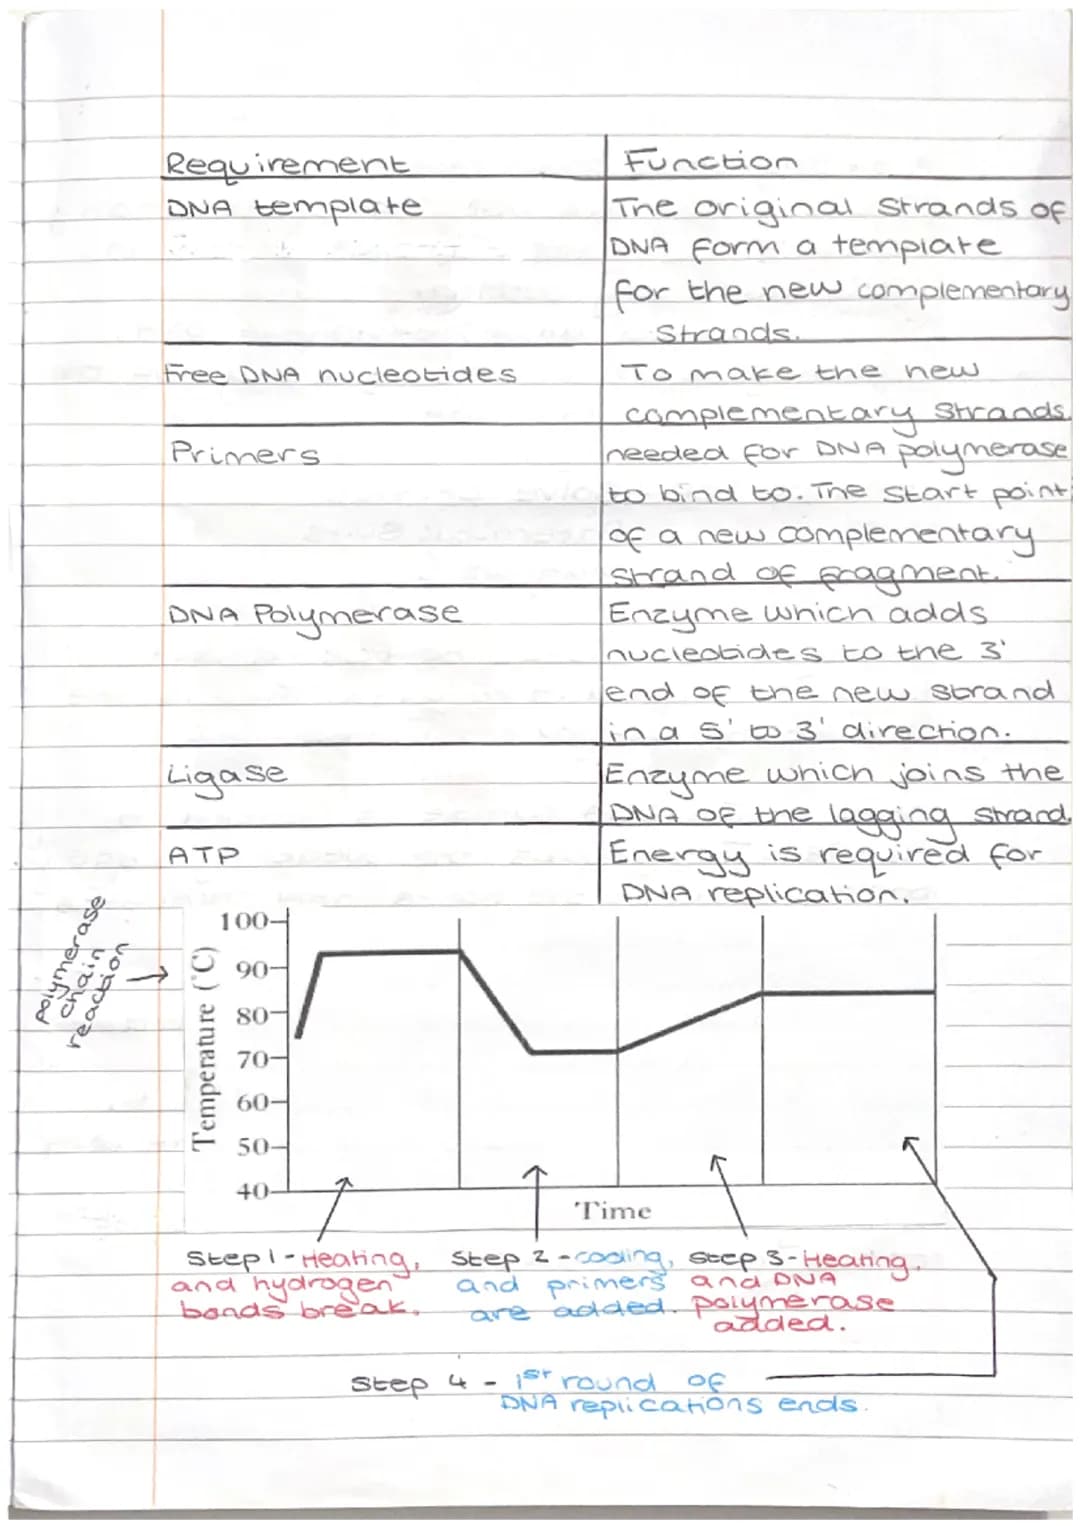 Requirement
Function
DNA template
The original strands of
DNA form a template
for the new complementary
strands.
Free DNA nucleotides
To make the new
complementary strands.
Primers
needed for DNA polymerase
to bind to. The start point
of a new complementary
strand of fragment.
DNA Polymerase
Enzyme which adds
nucleotides to the 3'
end of the new strand
in a 5' to 3' direction.
Ligase
Enzyme which joins the
DNA of the lagging strand.
ATP
Energy is required for
DNA replication.
Polymerase
chain
reaction
Temperature (°C)
100
90
80
70
60
50
40
Time
Step 1 - Heating,
and hydrogen
bonds break.
Step 2 - cooling,
and primers
are added.
Step 3 - Heating,
and DNA
polymerase
added.
Step 4 - 1st round of
DNA replications ends.